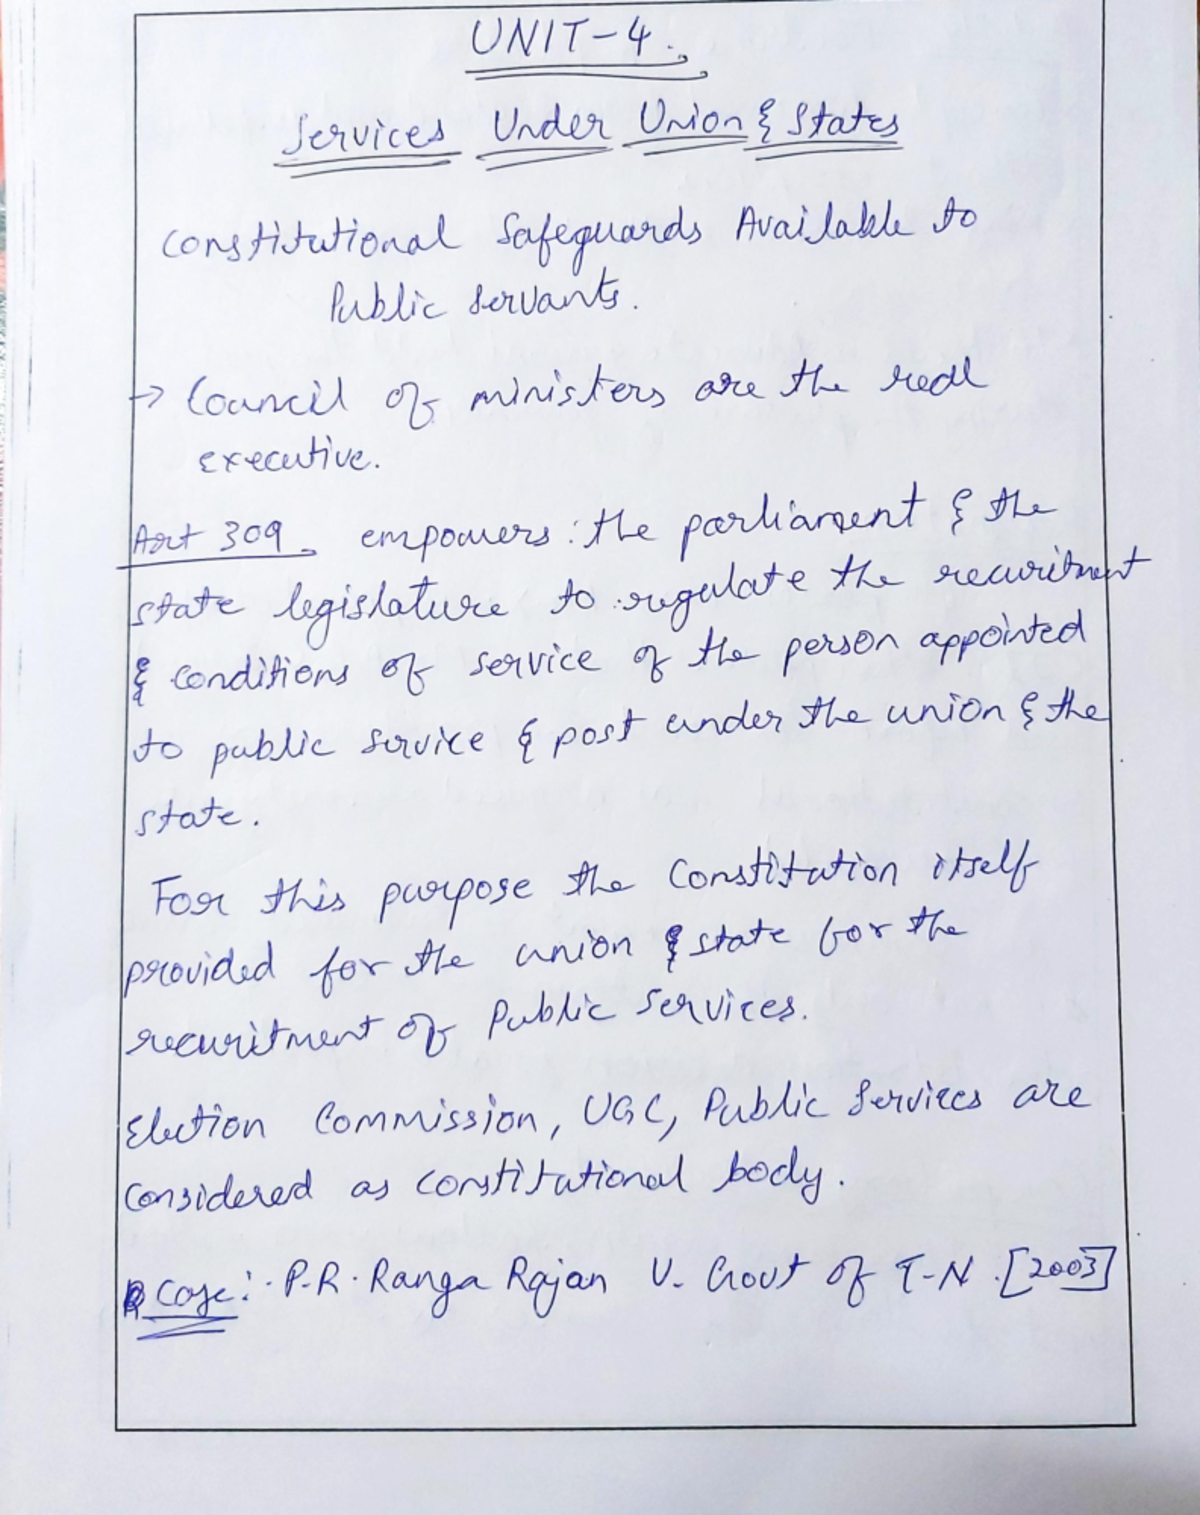 UNIT-4.
Services Under Union & States
Constitutional Safeguards Available to
Public Servants.
→ Council of ministers are the real
executive.
Art 309 empowers the parliament & the
state legislature to regulate the recuritment
& conditions of service of the person appointed
to public service & post under the union & the
state.
For this purpose the Constitution itself
provided for the union & state for the
recuritment of Public Services.
Election Commission, UGC, Public Services are
Considered as constitutional body.
Case:- P.R. Ranga Rajan V. Govt of T-N. [2003]